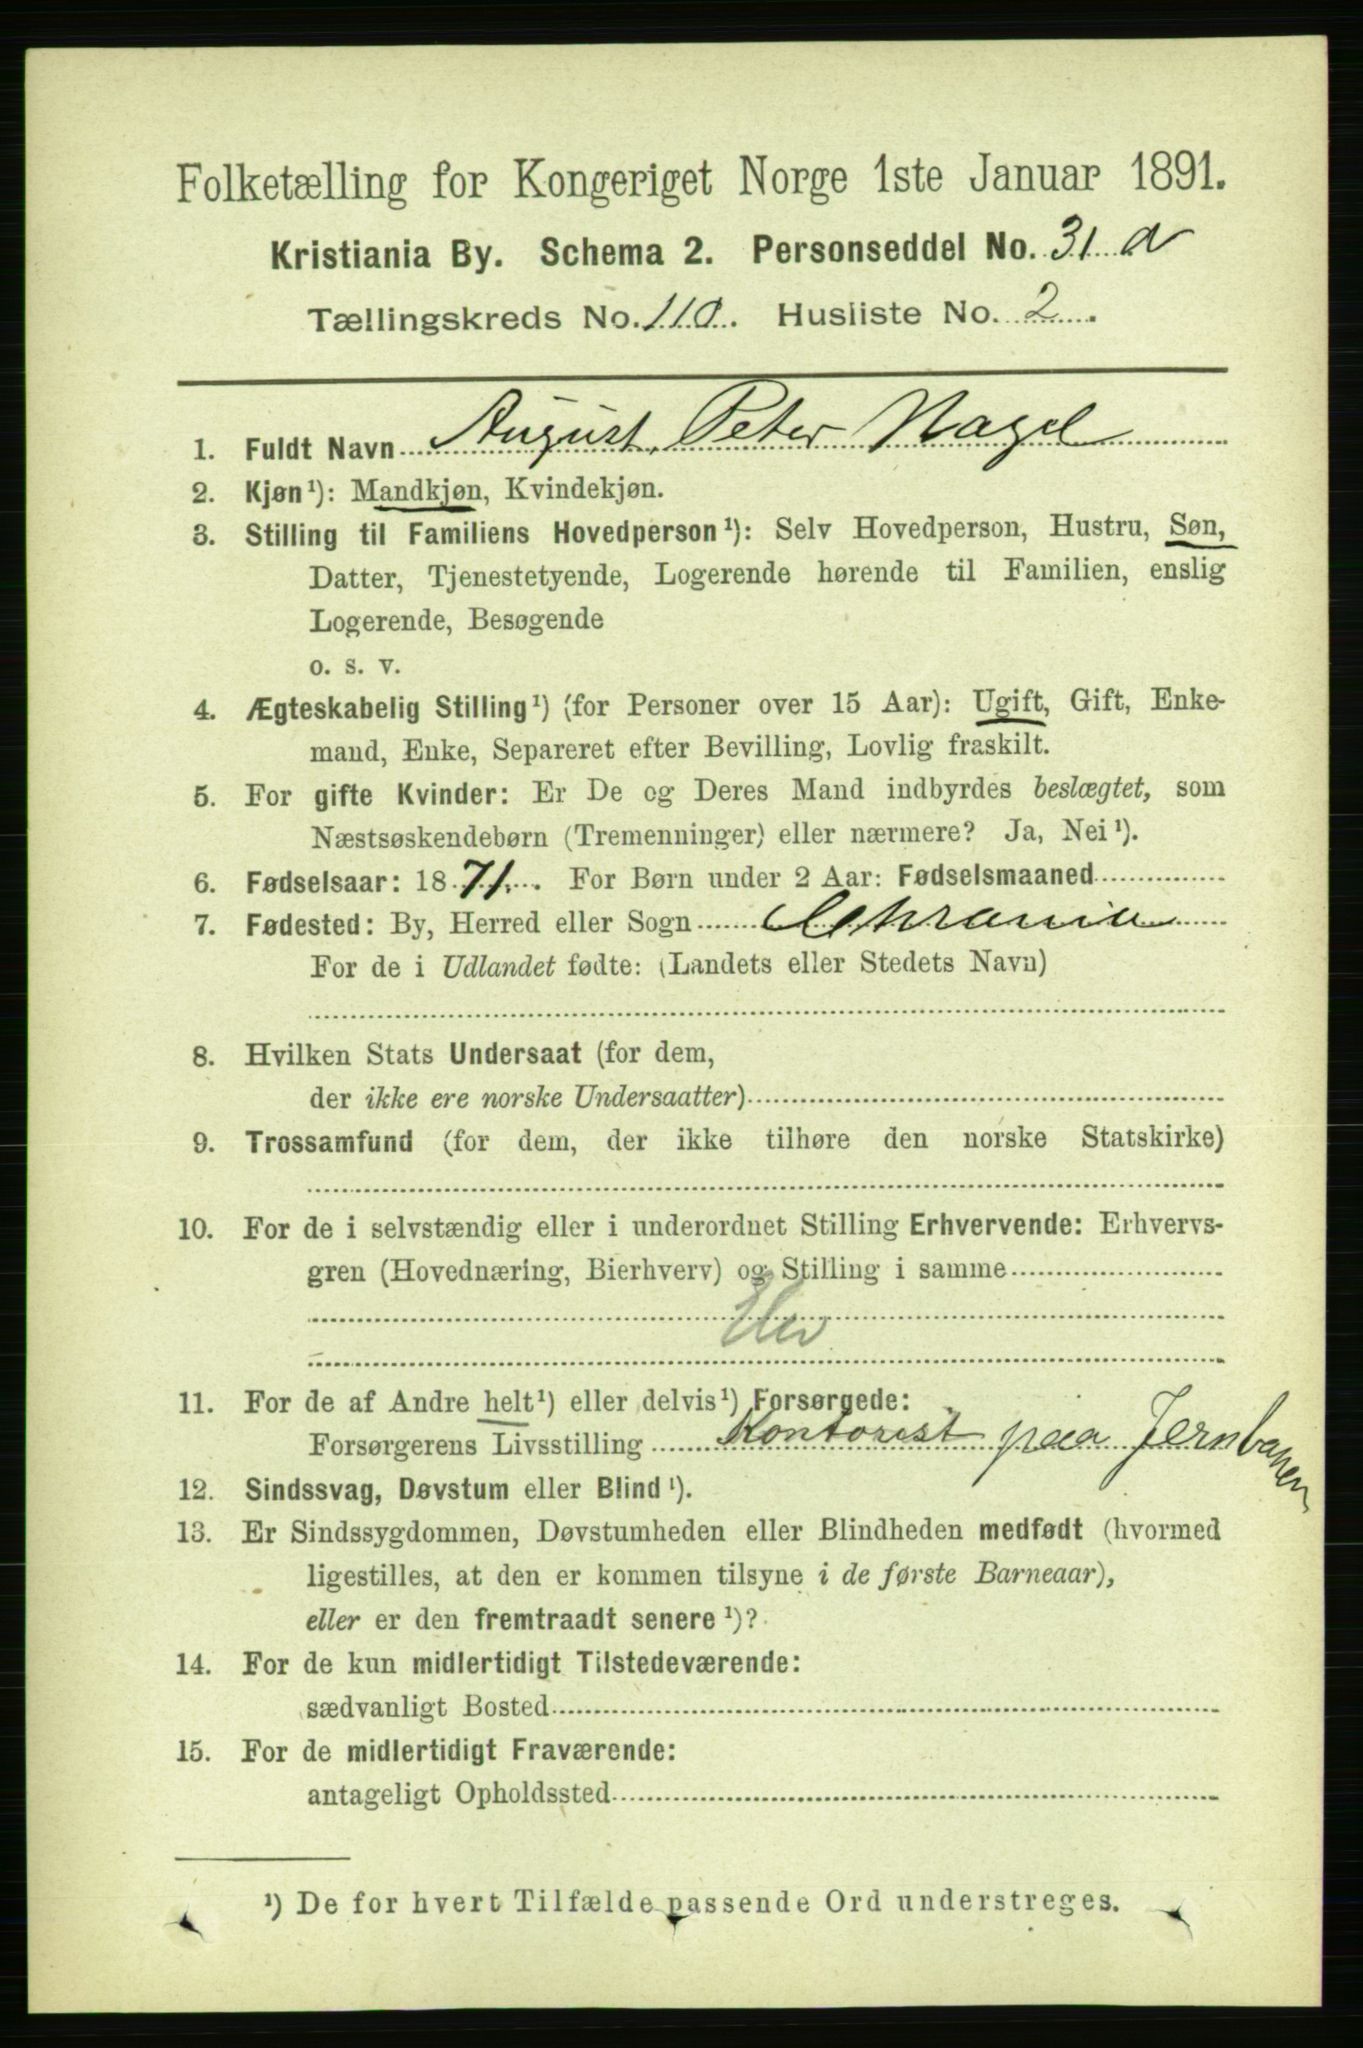 Folketælling for Kongeriget Norge 1ste Januar 1891.
Kristiania By. Schema 2. Personseddel No. 31 a
Tællingskreds No. 110. Husliste No. 2.
1. Fuldt Navn August Peter Nagel
2. Kjøn¹): Mandkjøn, Kvindekjøn.
3. Stilling til Familiens Hovedperson¹): Selv Hovedperson, Hustru, Søn,
Datter, Tjenestetyende, Logerende hørende til Familien, enslig
Logerende, Besøgende
o. s. v.
4. Ægteskabelig Stilling¹) (for Personer over 15 Aar): Ugift, Gift, Enke-
mand, Enke, Separeret efter Bevilling, Lovlig fraskilt.
5. For gifte Kvinder: Er De og Deres Mand indbyrdes beslægtet, som
Næstsøskendebørn (Tremenninger) eller nærmere? Ja, Nei¹).
6. Fødselsaar: 1871. For Børn under 2 Aar: Fødselsmaaned
7. Fødested: By, Herred eller Sogn Chrania
For de i Udlandet fødte: (Landets eller Stedets Navn)
8. Hvilken Stats Undersaat (for dem,
der ikke ere norske Undersaatter)
9. Trossamfund (for dem, der ikke tilhøre den norske Statskirke)
10. For de i selvstændig eller i underordnet Stilling Erhvervende: Erhvervs-
gren (Hovednæring, Bierhverv) og Stilling i samme
Elev
11. For de af Andre helt¹) eller delvis¹) Forsørgede:
Forsørgerens Livsstilling Kontorist paa Jernbanen
12. Sindssvag, Døvstum eller Blind¹).
13. Er Sindssygdommen, Døvstumheden eller Blindheden medfødt (hvormed
ligestilles, at den er kommen tilsyne i de første Barneaar),
eller er den fremtraadt senere¹)?
14. For de kun midlertidigt Tilstedeværende:
sædvanligt Bosted
15. For de midlertidigt Fraværende:
antageligt Opholdssted
¹) De for hvert Tilfælde passende Ord understreges.